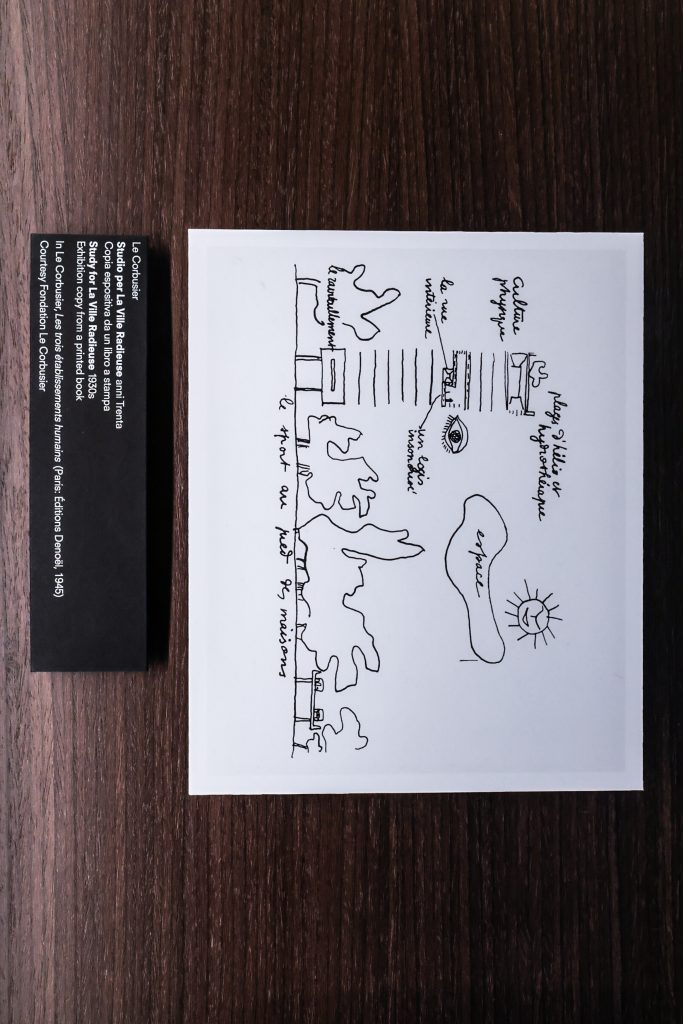 plage d'hélio et
hydrothérapie
Culture
physique
la rue
intérieure
un logis
insonorisé
espace
le ravitaillement
le sport au pied des maisons
Le Corbusier
Studio per La Ville Radieuse anni Trenta
Copia espositiva da un libro a stampa
Study for La Ville Radieuse 1930s
Exhibition copy from a printed book
In Le Corbusier, Les trois établissements humains (Paris: Éditions Denoël, 1945)
Courtesy Fondation Le Corbusier